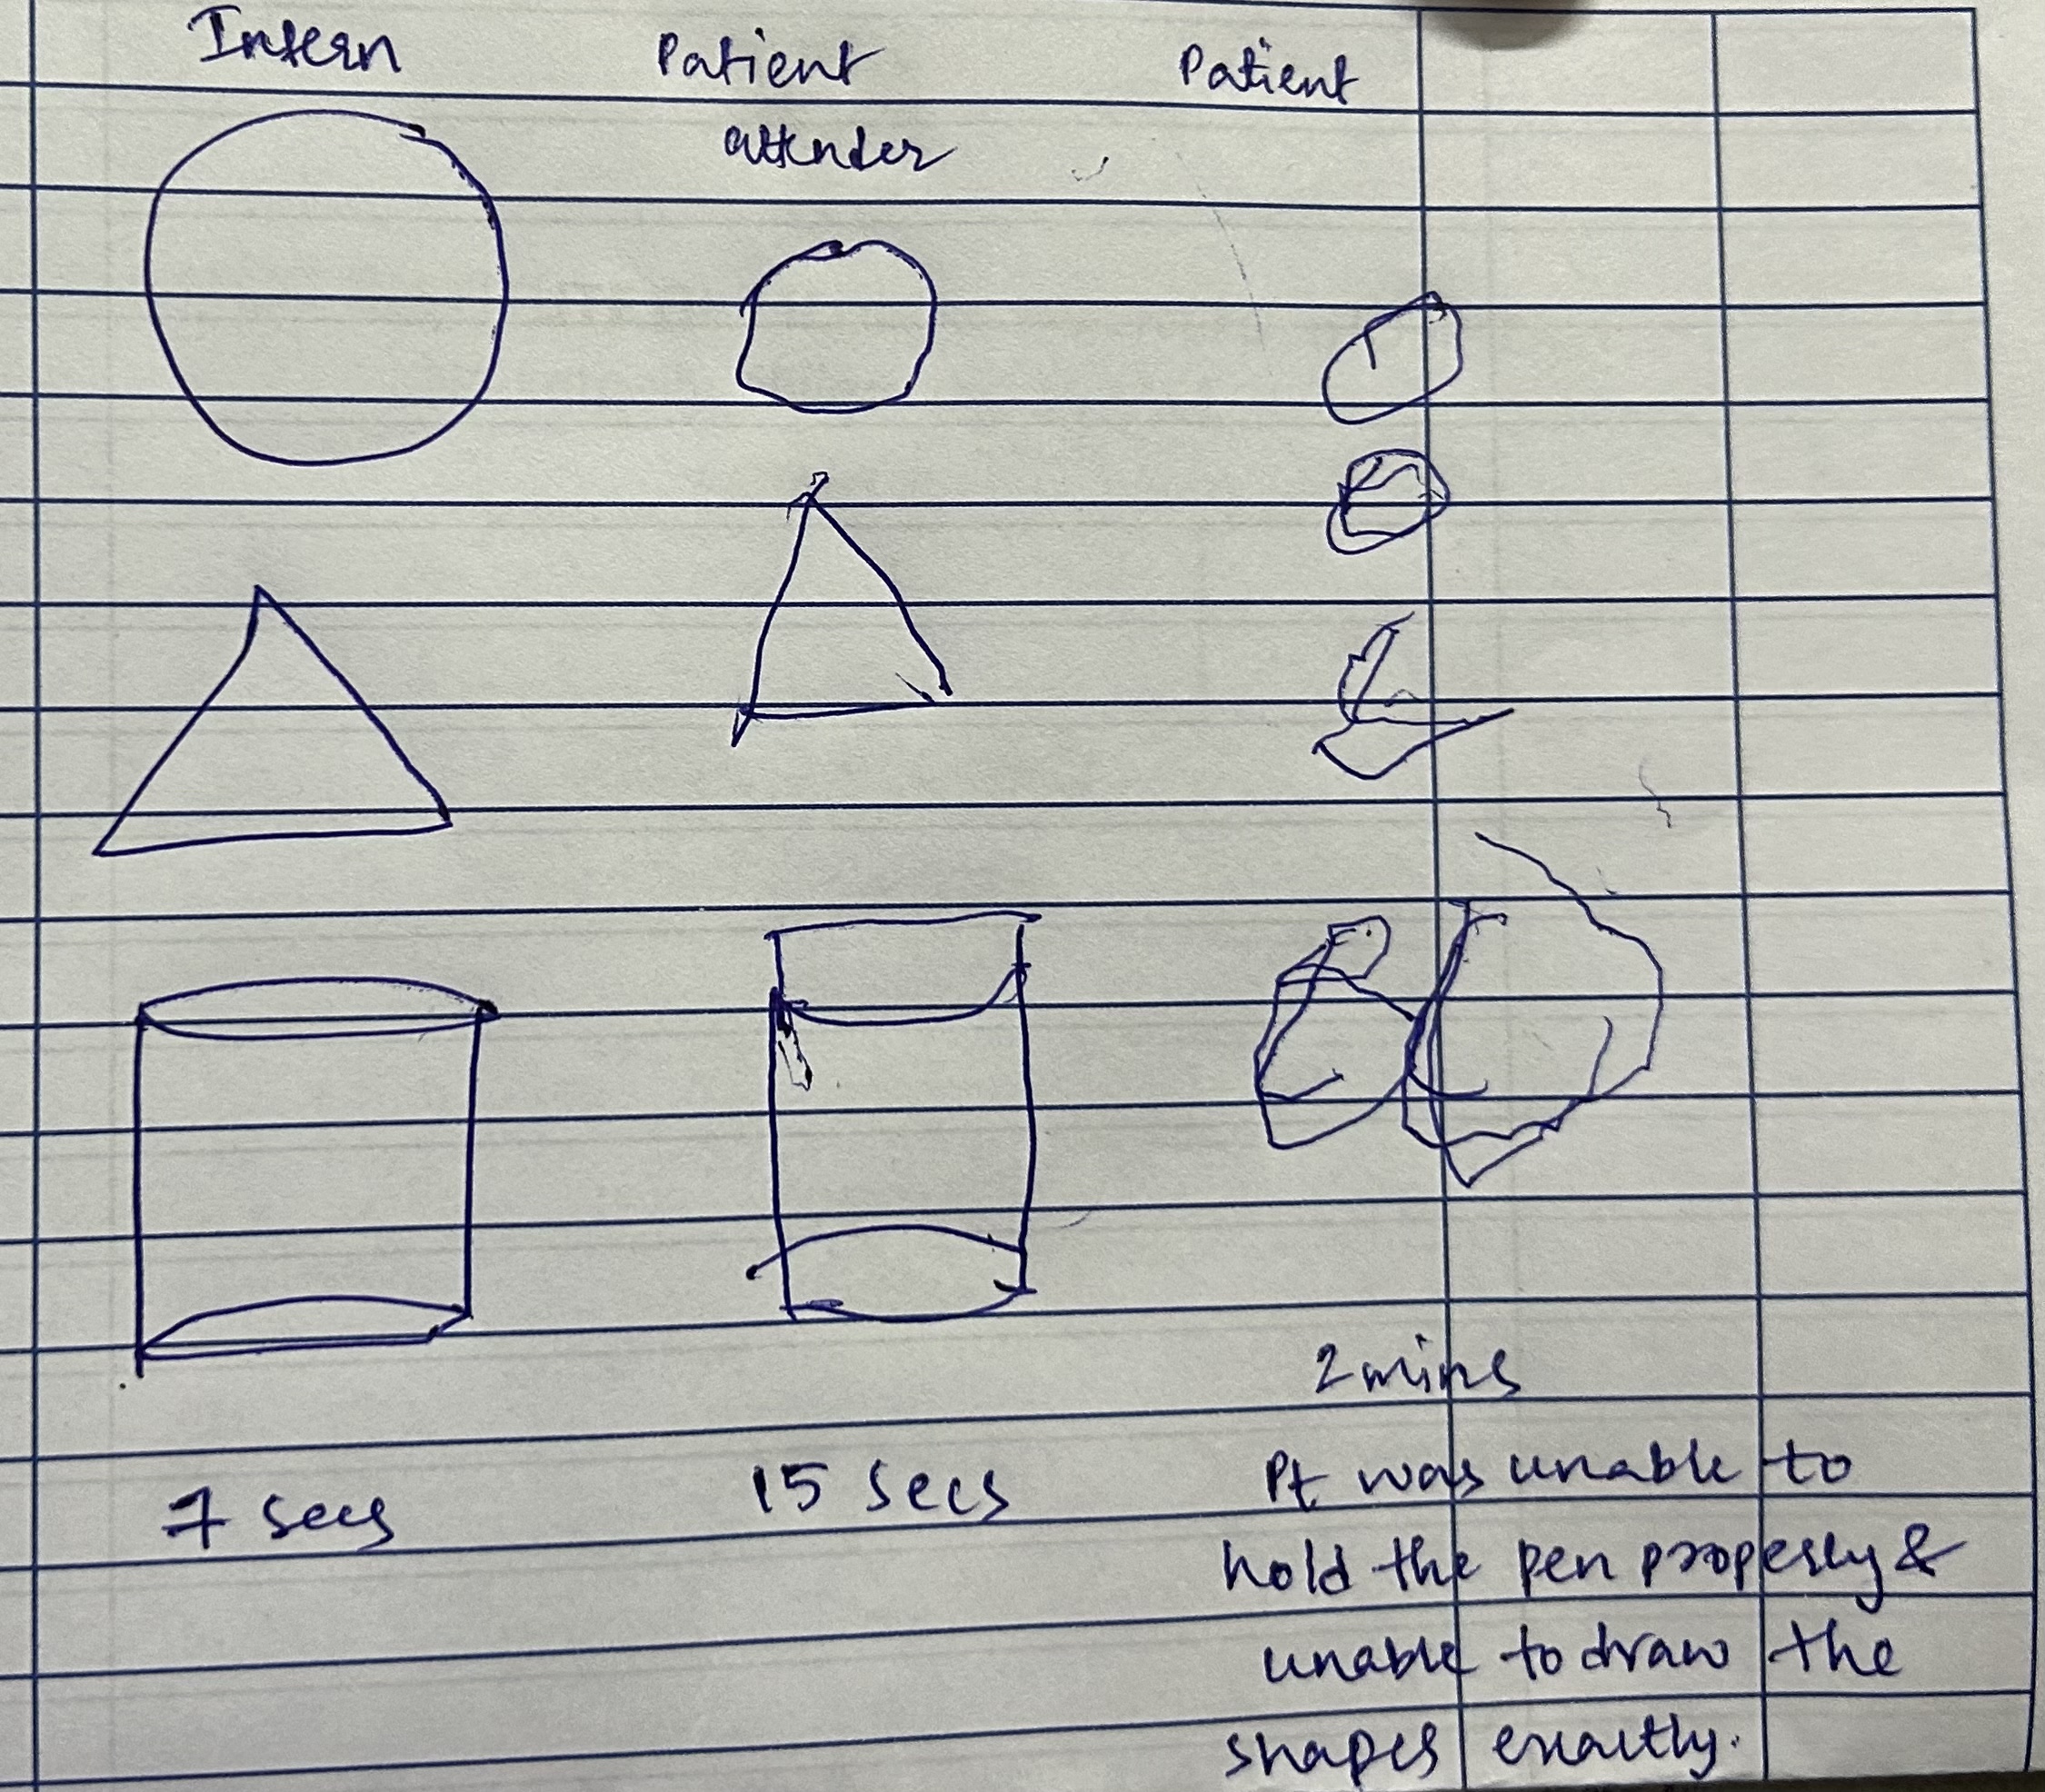 Intern
Patient
attender
Patient
7 secs
15 secs
2 mins
Pt was unable to
hold the pen properly &
unable to draw the
shapes exactly.